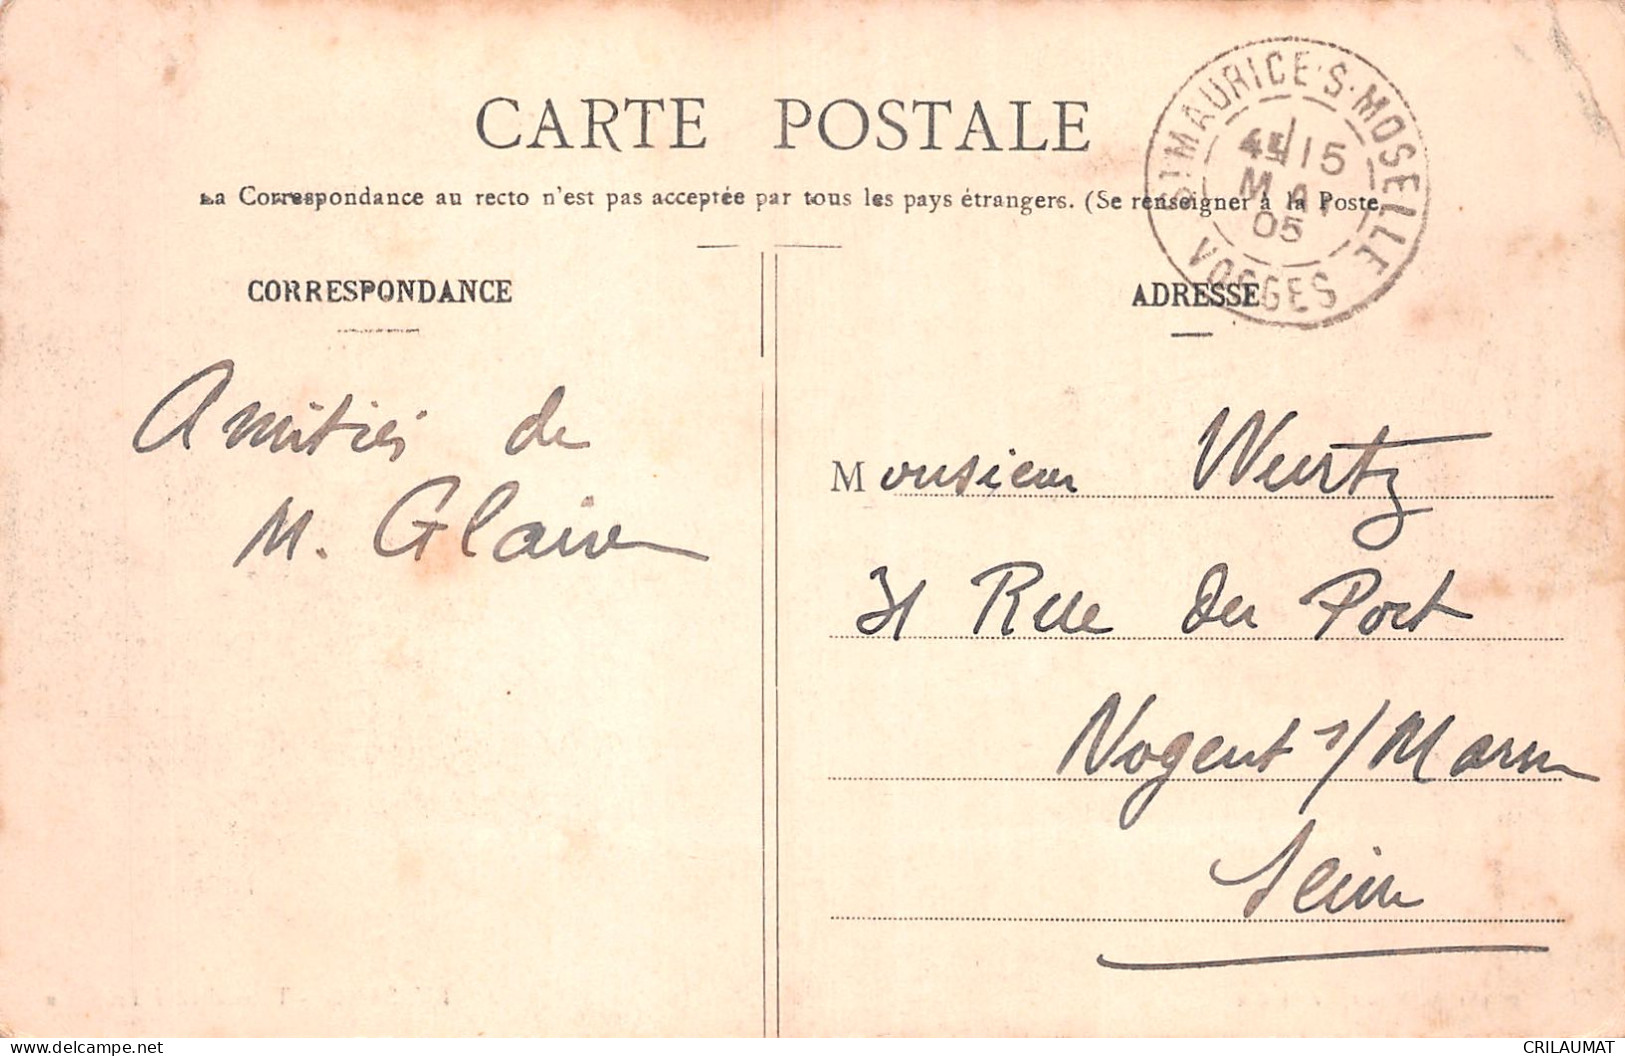 CARTE POSTALE
La Correspondance au recto n'est pas acceptée par tous les pays étrangers. (Se renseigner à la Poste.
ST MAURICE-S-MOSELLE
15
MAI
05
VOSGES
CORRESPONDANCE
Amitiés de
M. Glaive
ADRESSE
Monsieur Wurtz
31 Rue du Port
Nogent s/Marne
Seine
delcampe.net
CRILAUMAT